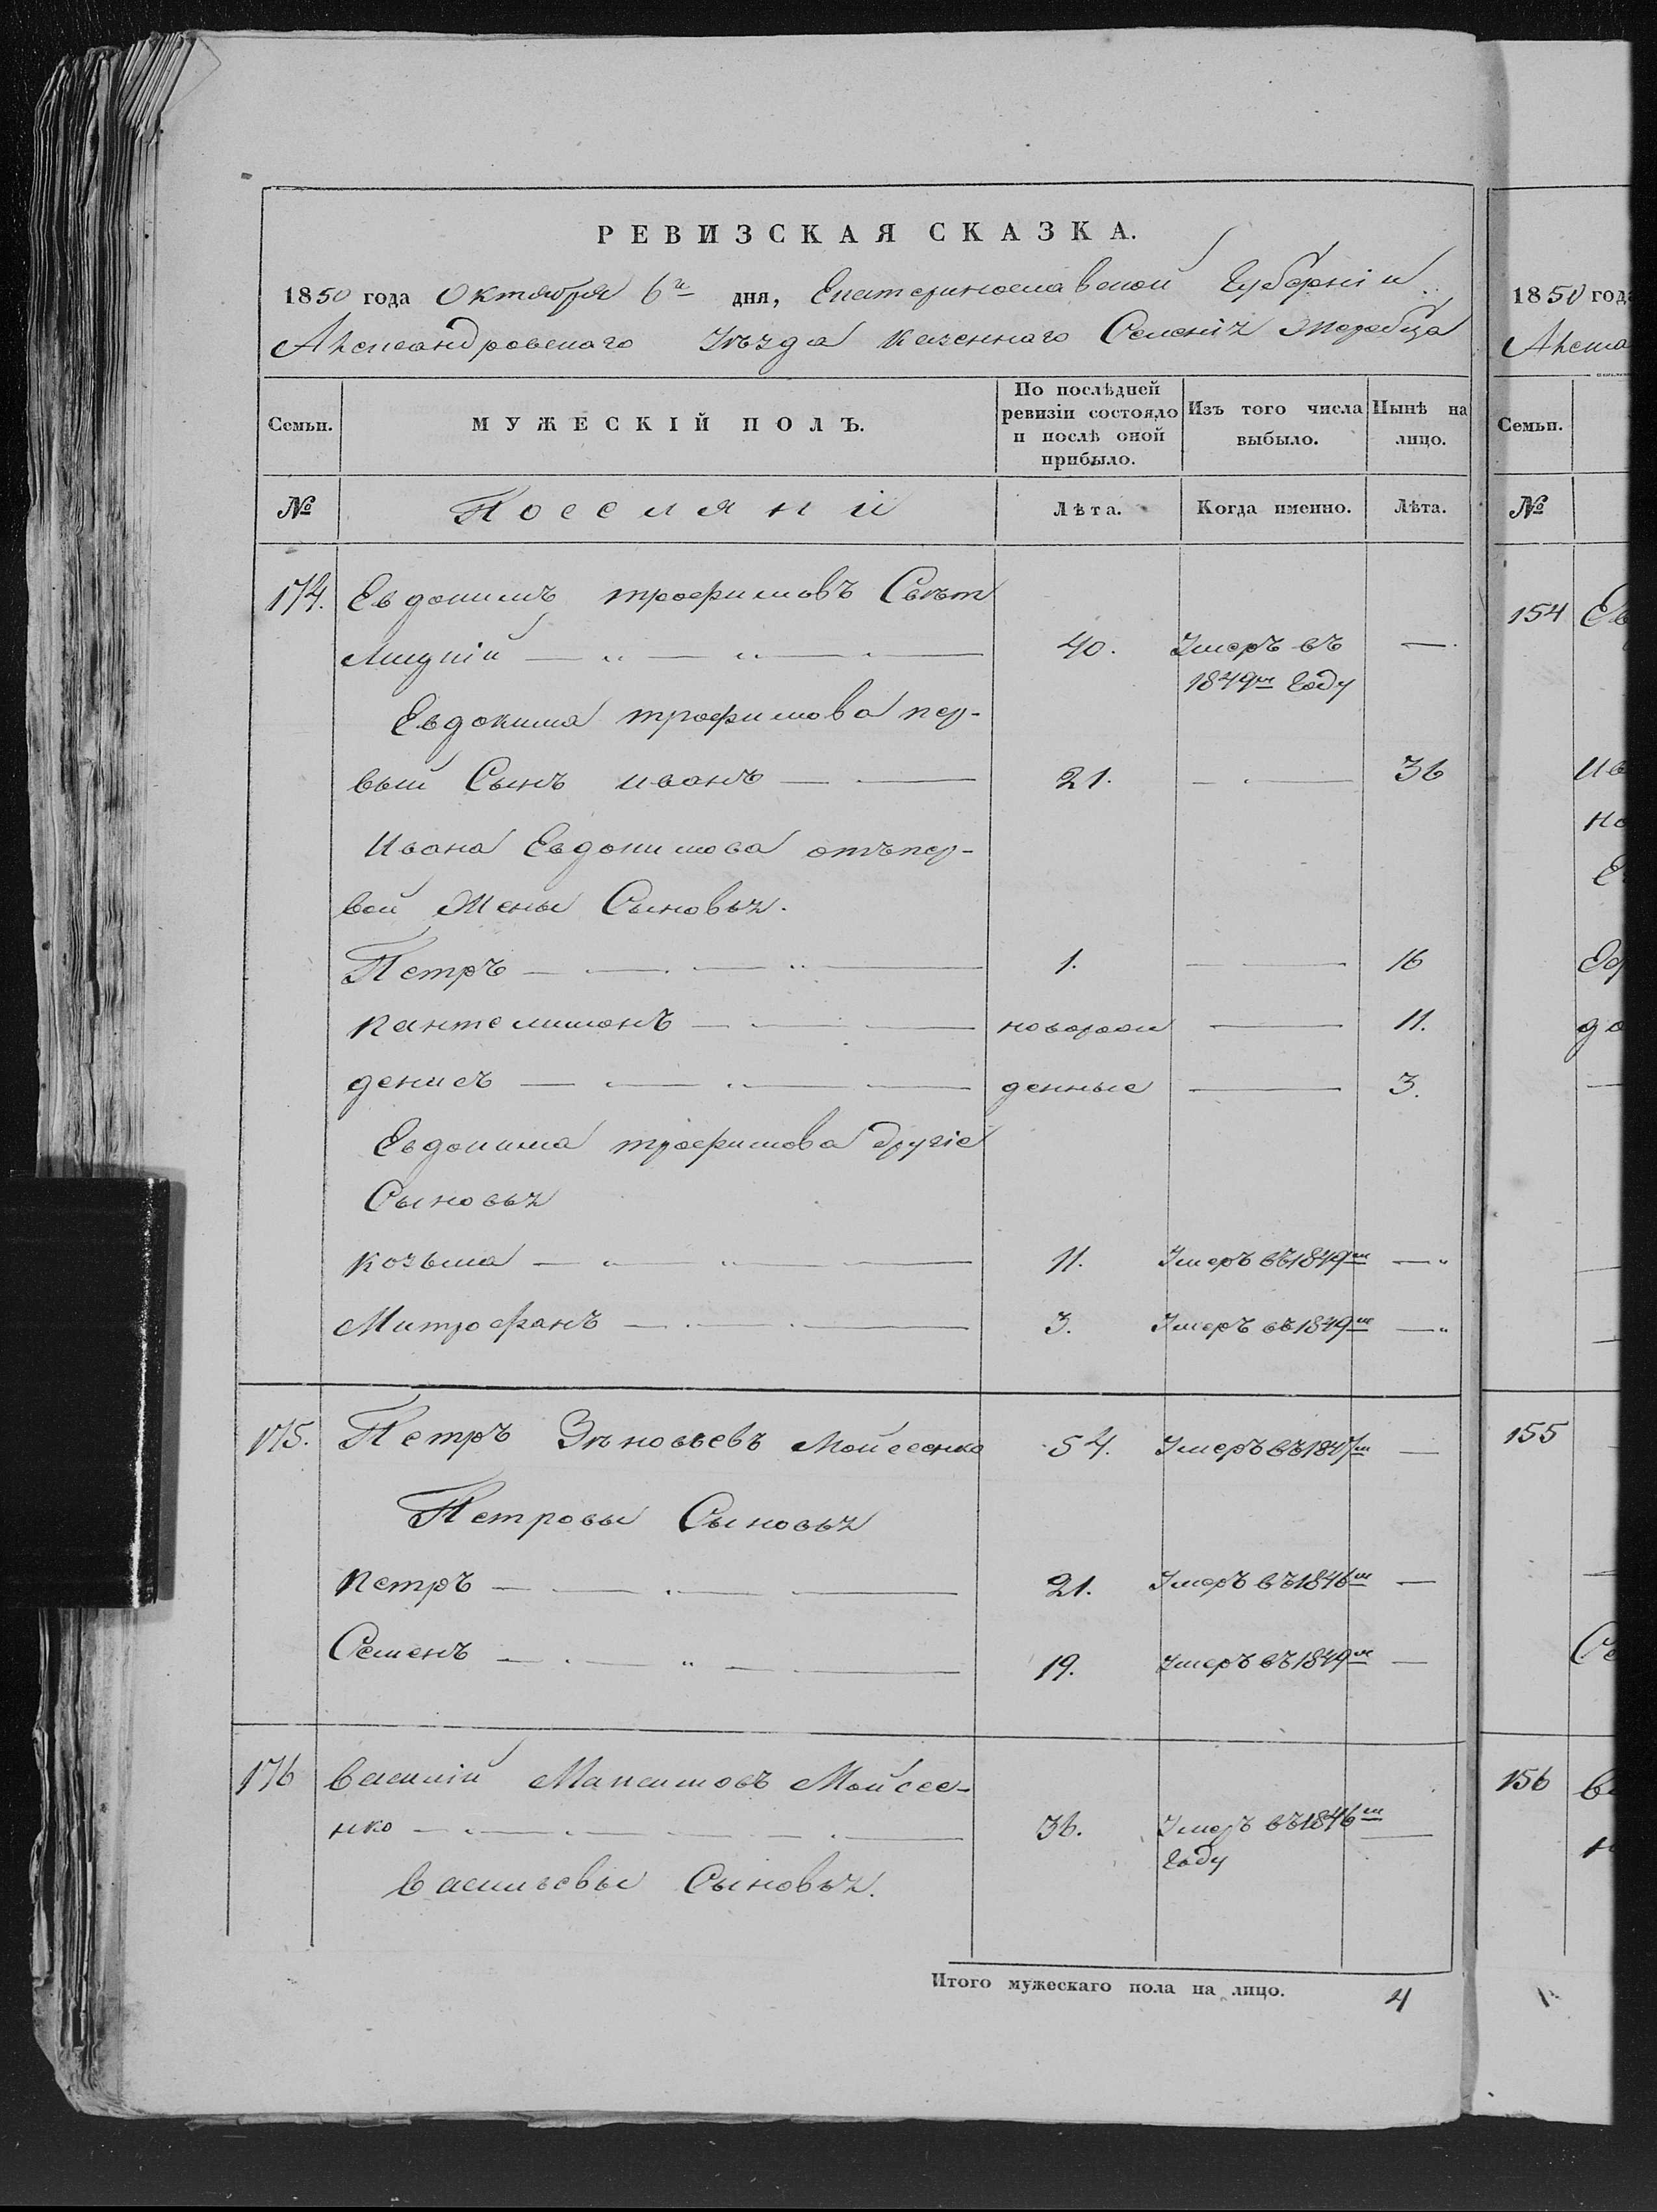 РЕВИЗСКАЯ СКАЗКА.
1850 года Октября 6го дня, Екатеринославской Губерніи
Александровскаго Уѣзда казеннаго Селенія Жеребца
Семьи. МУЖЕСКІЙ ПОЛЪ. По послѣдней ревизіи состояло и послѣ оной прибыло. Изъ того числа выбыло. Нынѣ на лицо.
№ Поселяни Лѣта. Когда именно. Лѣта.
174. Евдокимъ трофимовъ Свѣт
личній 40. Умеръ въ —
1849м Году
Евдокима трофимова пер-
вый Сынъ иванъ 21. — 36
Ивана Евдокимова отъ пер-
вой Жены Сыновья.
Петръ 1. — 16
пантелимонъ новорож — 11.
денисъ денные — 3.
Евдокима трофимова другіе
Сыновья
козьма 11. Умеръ въ 1849м —
Митрофанъ 3. Умеръ въ 1849м —
175. Петръ Зѣновьевъ Мойсеенко 54. Умеръ въ 1847м —
Петровы Сыновья
петръ 21. Умеръ въ 1846м —
Семенъ 19. Умеръ въ 1849м —
176 василій Максимовъ Мойсее-
нко 36. Умеръ въ 1846м —
Году
Васильевы Сыновья.
Итого мужескаго пола на лицо. 4
1850 года
Алекса
Семьи.
№
154 Ев
ив
но
Еф
до
155
Се
156 в
н